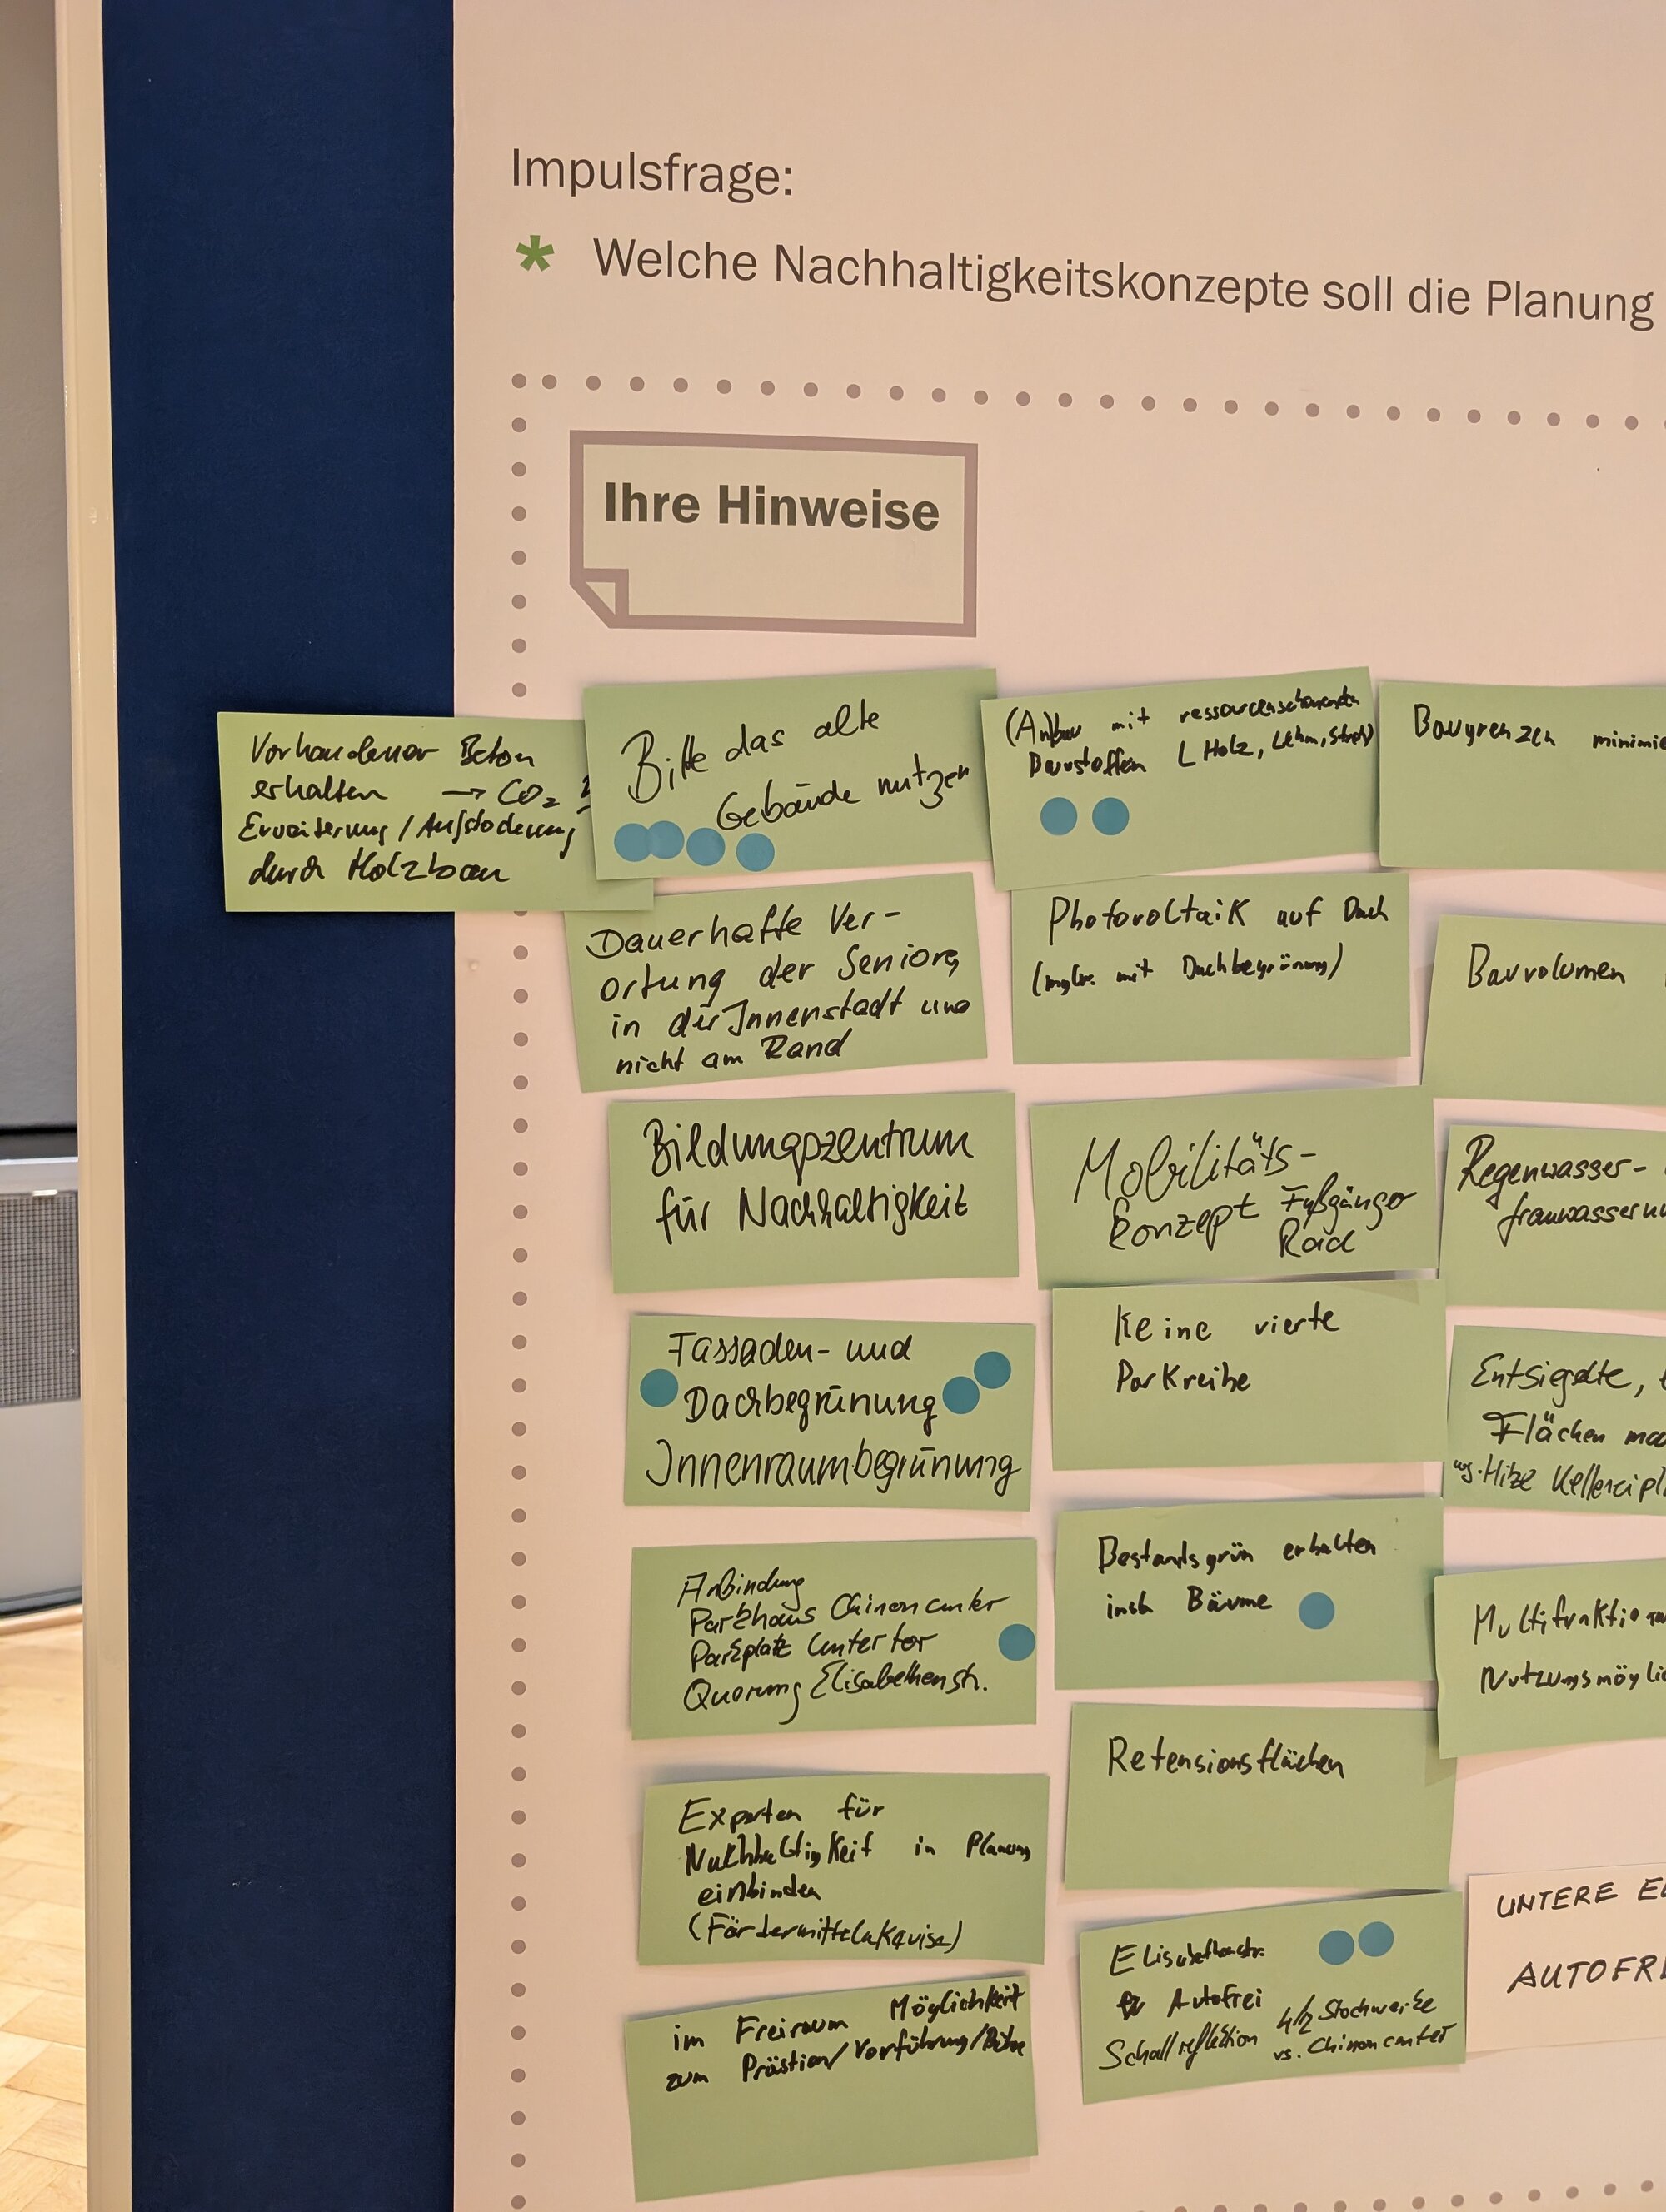 Impulsfrage:
* Welche Nachhaltigkeitskonzepte soll die Planung
Ihre Hinweise
Vorhandener Beton
erhalten → CO₂
Erweiterung / Aufstockung
durch Holzbau
Bitte das alte
Gebäude nutzen
Dauerhafte Ver-
ortung der Senioren
in der Innenstadt und
nicht am Rand
Bildungszentrum
für Nachhaltigkeit
Fassaden- und
Dachbegrünung
Innenraumbegrünung
Anbindung
Parkhaus Chinoncenter
Parkplatz Untertor
Querung Elisabethenstr.
Experten für
Nachhaltigkeit in Planung
einbinden
(Fördermittelakquise)
im Freiraum Möglichkeit
zum Vorführung/
(An)bau mit ressourcenschonenden
Baustoffen (Holz, Lehm, Stroh)
Photovoltaik auf Dach
(mglw. mit Dachbegrünung)
Mobilitäts-
konzept Fußgänger
Rad
Keine vierte
Parkreihe
Bestandsgrün erhalten
insb Bäume
Retensionsflächen
Elisabethenstr.
Autofrei
Schallreflektion 4/2 Stockwerke
vs. Chinoncenter
Baugrenzen minimie
Bauvolumen
Regenwasser-
Entsiegelte,
Flächen
wg. Hitze
Multifunktio
Nutzungsmögli
UNTERE
AUTOFR